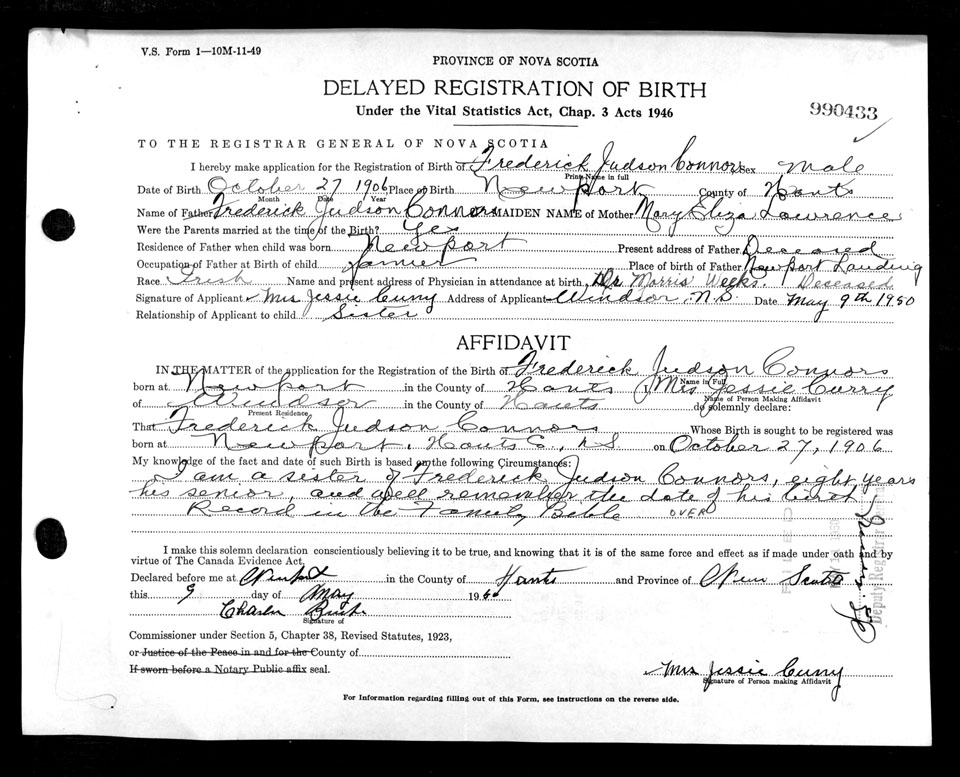 V.S. Form 1—10M-11-49
PROVINCE OF NOVA SCOTIA
DELAYED REGISTRATION OF BIRTH
Under the Vital Statistics Act, Chap. 3 Acts 1946
990433
TO THE REGISTRAR GENERAL OF NOVA SCOTIA
I hereby make application for the Registration of Birth of Frederick Judson Connors Sex Male
Print Name in full
Date of Birth October 27 1906 Place of Birth Newport County of Hants
Month Date Year
Name of Father Frederick Judson Connors MAIDEN NAME of Mother Mary Eliza Lawrence
Were the Parents married at the time of the Birth? Yes
Residence of Father when child was born Newport Present address of Father Deceased
Occupation of Father at Birth of child Place of birth of Father Newport Landing
Race Irish Name and present address of Physician in attendance at birth, Dr Morris Weeks. Deceased
Signature of Applicant Mrs Jessie Curry Address of Applicant Windsor, N.S. Date May 9th 1950
Relationship of Applicant to child Sister
AFFIDAVIT
IN THE MATTER of the application for the Registration of the Birth of Frederick Judson Connors
Name in Full
born at Newport in the County of Hants I, Mrs Jessie Curry
Name of Person Making Affidavit
of Windsor in the County of Hants do solemnly declare:
Present Residence
That Frederick Judson Connors Whose Birth is sought to be registered was
born at Newport, Hants Co., N.S on October 27, 1906
My knowledge of the fact and date of such Birth is based on the following Circumstances:
I am a sister of Frederick Judson Connors, eight years
his senior, and well remember the date of his birth
Record in the Family Bible OVER
I make this solemn declaration conscientiously believing it to be true, and knowing that it is of the same force and effect as if made under oath and by
virtue of The Canada Evidence Act.
Declared before me at Newport in the County of Hants and Province of Nova Scotia
this 9 day of May 19
Charles
Signature of
Commissioner under Section 5, Chapter 38, Revised Statutes, 1923,
or Justice of the Peace in and for the County of
If sworn before a Notary Public affix seal.
Mrs Jessie Curry
Signature of Person making Affidavit
For Information regarding filling out of this Form, see instructions on the reverse side.
FILED
Deputy Registrar